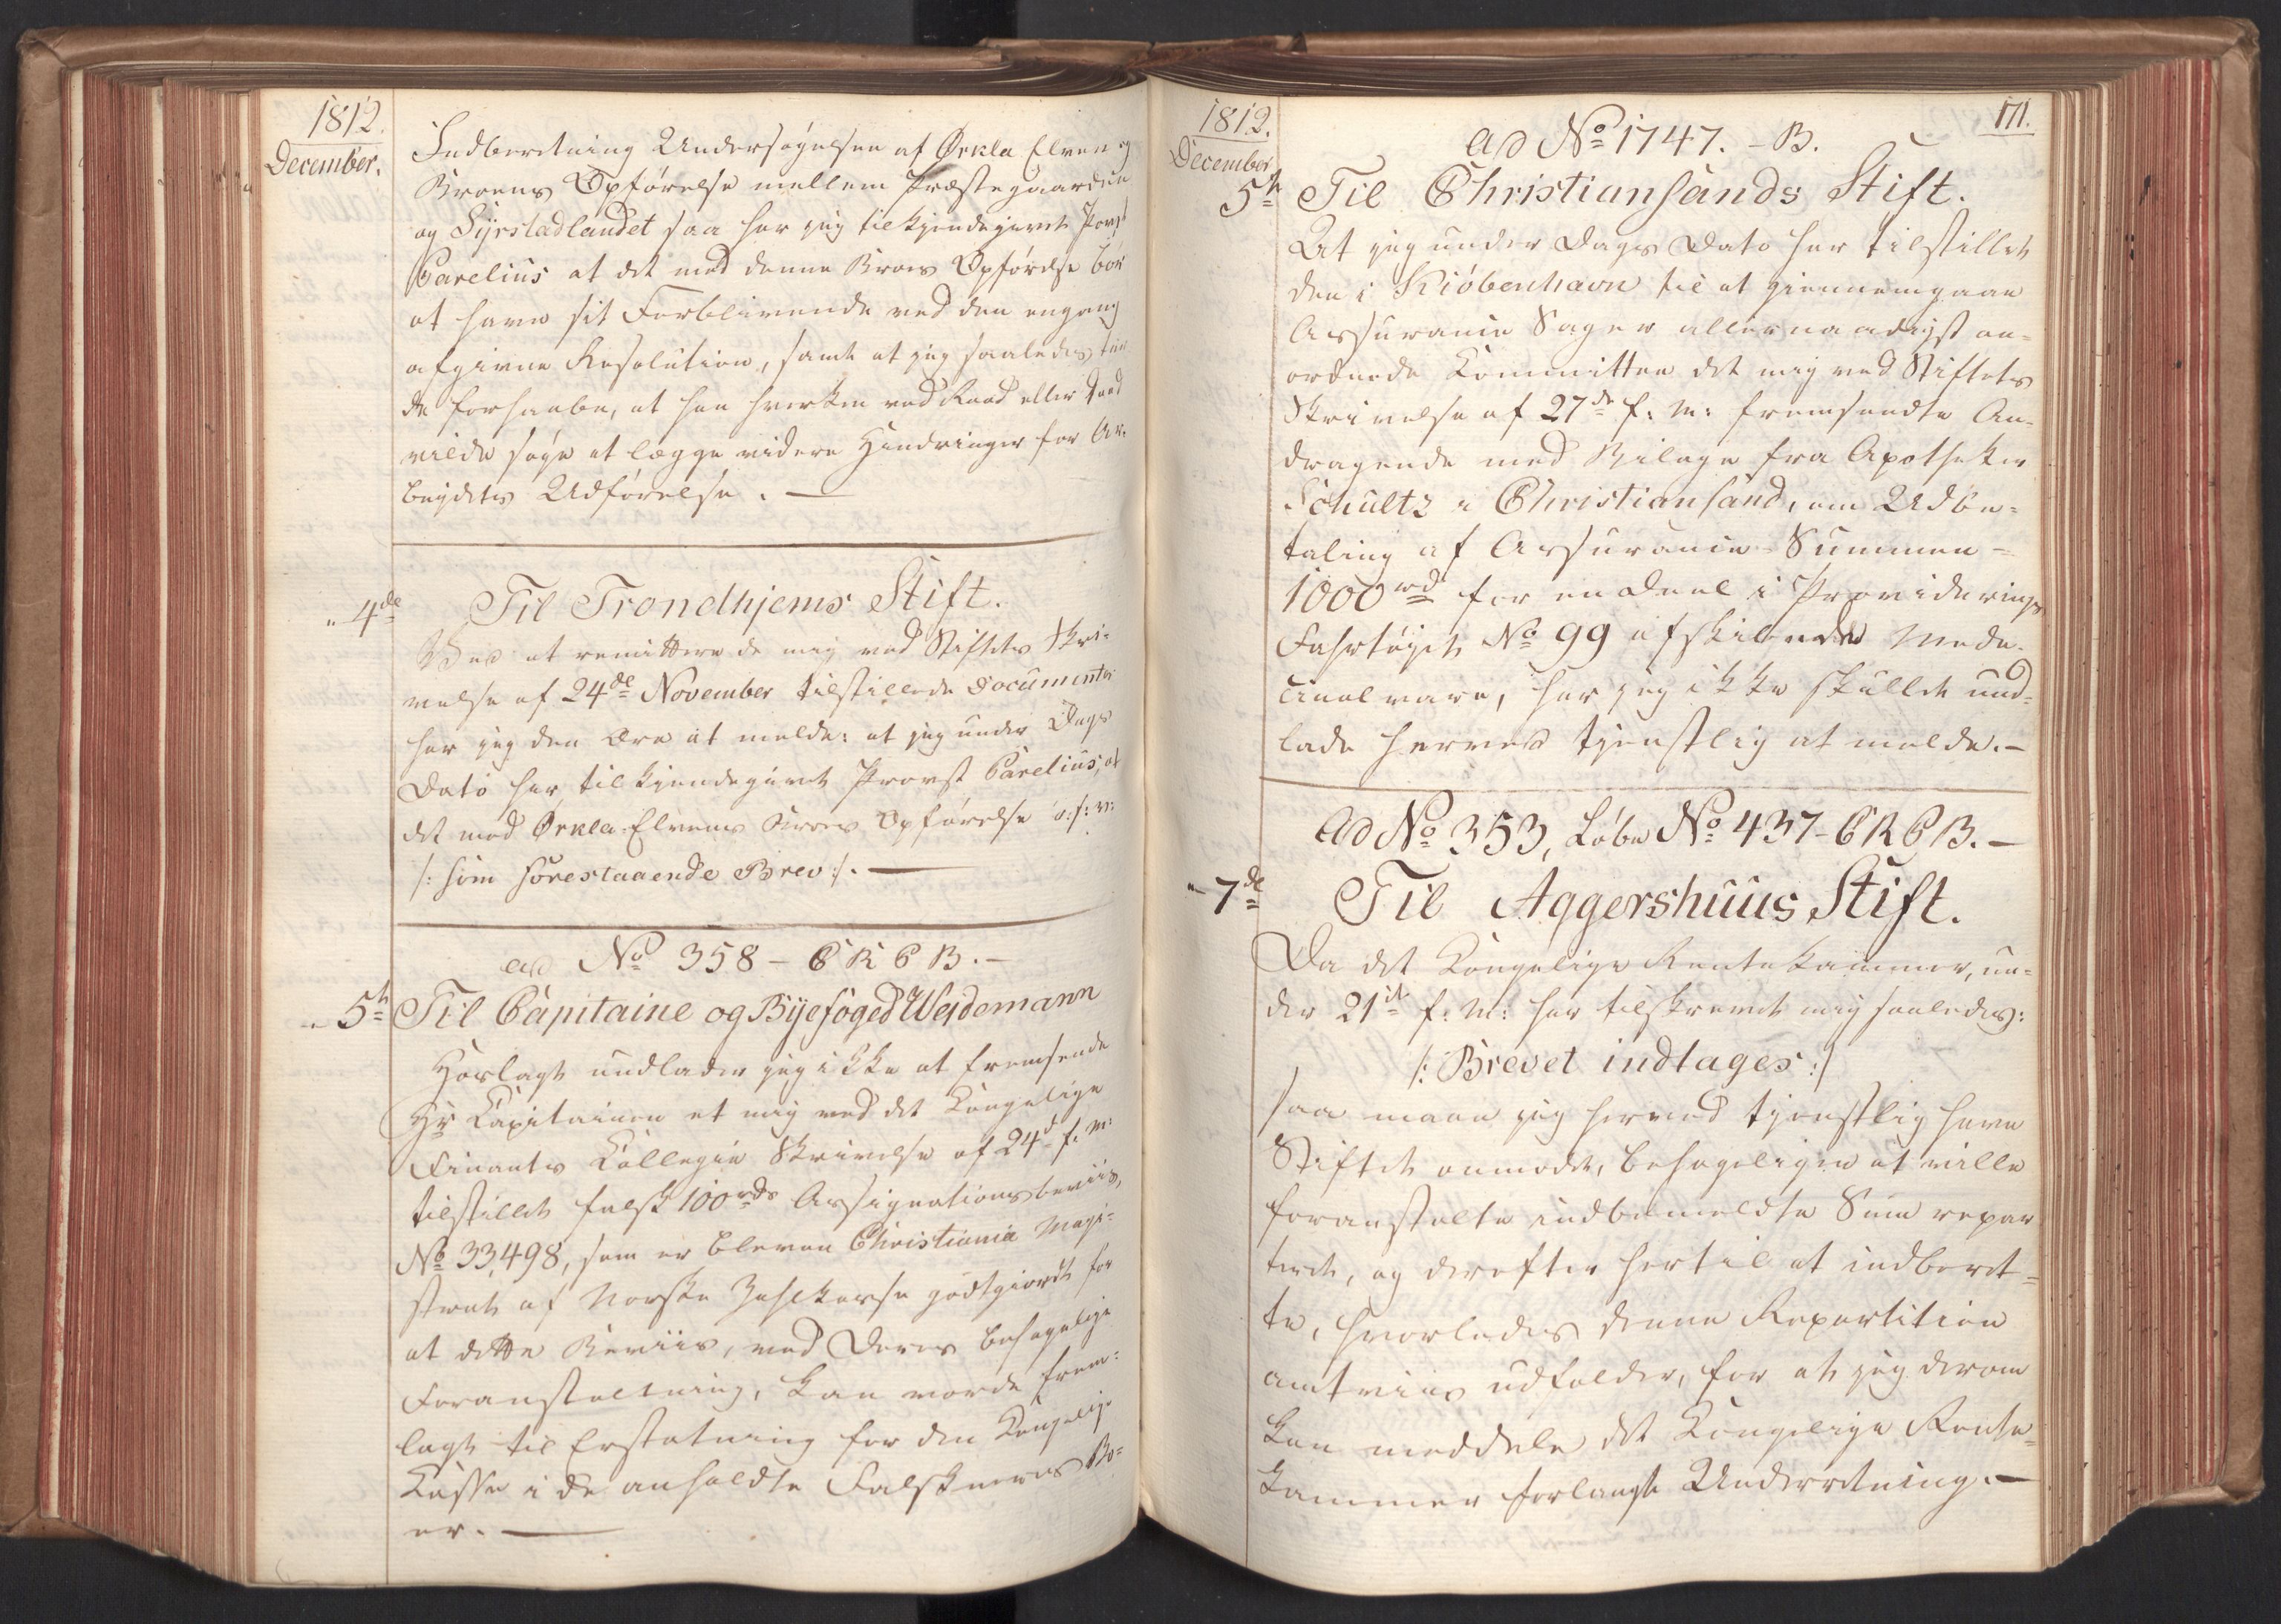 1812.
December.
Indberetning Undersøgelsen af Ørkla Elven og
Broens Opførelse mellem Præstegaarden
og Syrstadlandet saa har jeg tilkjendegivet Provst
Parelius at det med denne Broes Opførelse bør
at have sit Forblivende ved den engang
afgivne Resolution, samt at jeg saaledes
de forhaabe, at han hverken ved Raad eller Daad
vilde søge at lægge videre Hindringer for Ar-
beydets Udførelse. —
" 4de Til Trondhjems Stift.
Ved at remittere de mig ved Stiftets Skri-
velse af 24de November tilstillede Documenter
har jeg den Ære at melde: at jeg under Dags
Dato har tilkjendegivet Provst Parelius, at
det med Ørkla-Elvens Broes Opførelse o: s: v:
/: som forestaaende Brev :/. —
ad No 358 - C K C B. -
" 5te Til Capitaine og Byefoged Weidemann
Hoslagt undlader jeg ikke at fremsende
Hr Capitainen et mig ved det Kongelige
Finants Collegie Skrivelse af 24d f: M:
tilstillet falsk 100 rds Assignationsbeviis,
No 33,498, som er bleven Christiania Magi-
strat af Norske Zahlkasse godtgiordt for
at dette Beviis, ved Deres behagelige
Foranstaltning, kan vorde frem-
lagt til Erstatning for den Kongelige
Kasse i de anholdte Falskneres Bo-
er. —
1812.
December
171.
ad No 1747. - B.
5te Til Christiansands Stift.
At jeg under Dags Dato har tilstillet
den i Kiöbenhavn til at giennemgaae
Assurance Sager allernaadigst an-
ordnede Committee det mig ved Stiftets
Skrivelse af 27de f: M: fremsendte An-
dragende med Bilage fra Apotheker
Schultz i Christiansand, om Udbe-
taling af Assurance-Summen -
1000 rd for en Deel i Providerings
Fartøyet No 99 afskibede Medi-
cinalvare, har jeg ikke skullet und-
lade herved tjenstlig at melde. -
Ad No 353, Löbe No 437 - C K C B. -
" 7de Til Aggershuus Stift.
Da det Kongelige Rentekammer, un-
der 21de f: M: har tilskrevet mig saaledes:
/: Brevet indtages :/
saa maae jeg herved tjenstlig have
Stiftet anmodet, behageligen at ville
foranstalte indbemeldte Sum repar-
teret, og derefter hertil at indberet-
te, hvorledes denne Repartition
amtviis udfalder, for at jeg derom
kan meddele det Kongelige Rente-
kammer forlangte Underretning. —